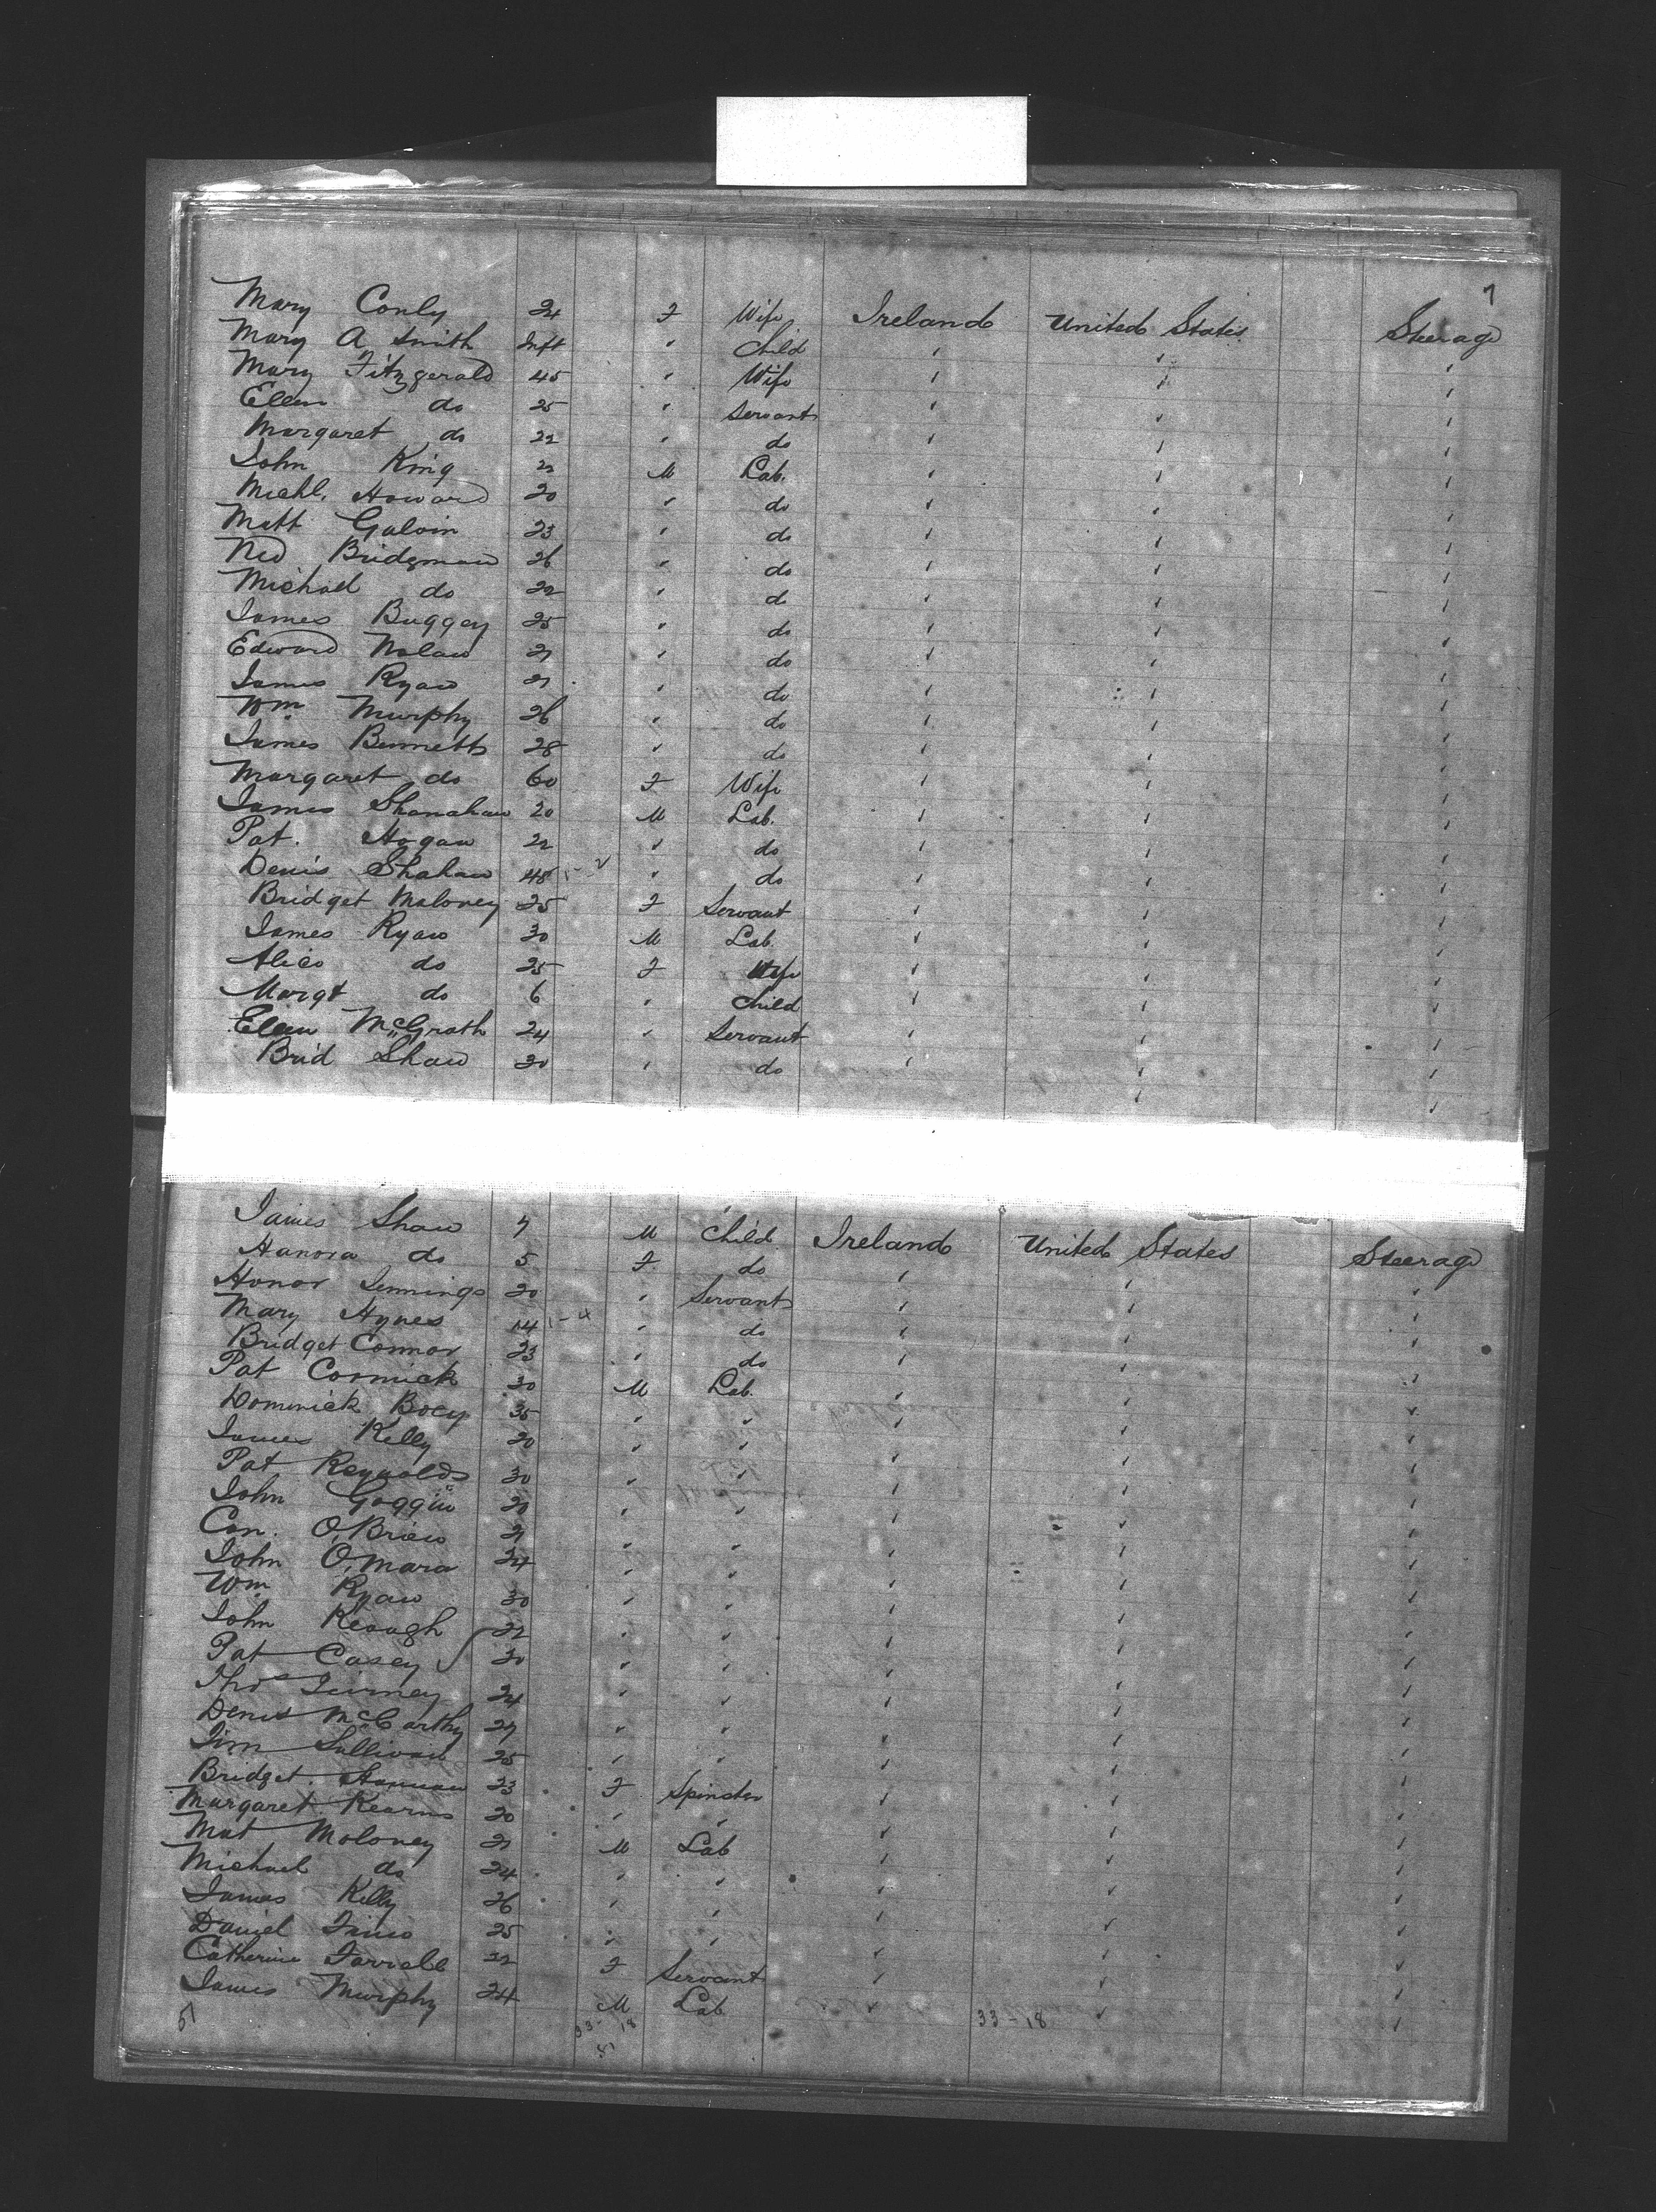 7
Mary Conly 24 F Wife Ireland United States Steerage
Mary A Smith Inft " Child " " "
Mary Fitzgerald 45 " Wife " " "
Ellen do 25 " Servant " " "
Margaret do 22 " do " " "
John King 22 M Lab. " " "
Michl. Howard 20 " do " " "
Matt Galvin 23 " do " " "
Ned Bridgman 26 " do " " "
Michael do 22 " do " " "
James Buggey 25 " do " " "
Edward Nolan 21 " do " " "
James Ryan 21 " do " " "
Wm Murphy 26 " do " " "
James Bennett 28 " do " " "
Margaret do 60 F Wife " " "
James Shanahan 20 M Lab. " " "
Pat. Hogan 22 " do " " "
Denis Shahan 48 " do " " "
Bridget Maloney 25 F Servant " " "
James Ryan 30 M Lab. " " "
Alice do 25 F Wife " " "
Margt do 6 " Child " " "
Ellen McGrath 24 " Servant " " "
Brid Shaw 30 " do " " "
James Shaw 7 M Child Ireland United States Steerage
Hanora do 5 F do " " "
Honor Jennings 20 " Servant " " "
Mary Hynes 14 " do " " "
Bridget Connor 23 " do " " "
Pat Cormick 30 M Lab. " " "
Dominick Bocy 35 " " " " "
James Kelly 20 " " " " "
Pat Reynolds 30 " " " " "
John Goggin 20 " " " " "
Con. O'Brien 21 " " " " "
John O'Mara 24 " " " " "
Wm Ryan 30 " " " " "
John Keough 22 " " " " "
Pat Casey 30 " " " " "
Thos Tierney 24 " " " " "
Denis McCarthy 27 " " " " "
Jim Sullivan 25 " " " " "
Bridget Hannan 23 F Spinster " " "
Margaret Kearns 20 " " " " "
Mat Moloney 21 M Lab " " "
Michael do 24 " " " " "
James Kelly 26 " " " " "
Daniel 25 " " " " "
Catherine Farrell 22 F Servant " " "
James Murphy 24 M Lab " " "
51 33-18 33-18
51